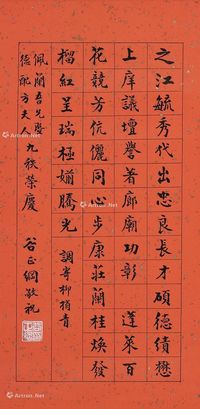 之江毓秀代出忠良長才碩德績懋
上庠議壇譽著廊廟功彰　蓬萊百
花競芳伉儷同心步康莊蘭桂煥發
榴紅呈瑞極婺騰光　調寄柳梢青
佩蘭吾兄暨
德配方夫人九秩榮慶
谷正綱敬祝